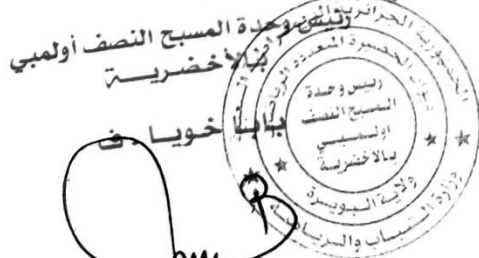 رئيس وحدة المسبح النصف أولمبي
بالأخضرية
بابا خويا . ف
الجمهورية الجزائرية
ديوان الحظيرة المتعددة
رئيس وحدة
المسبح النصف
اولمبي
بالاخضرية
ولاية البويرة
وزارة الشباب والرياضة